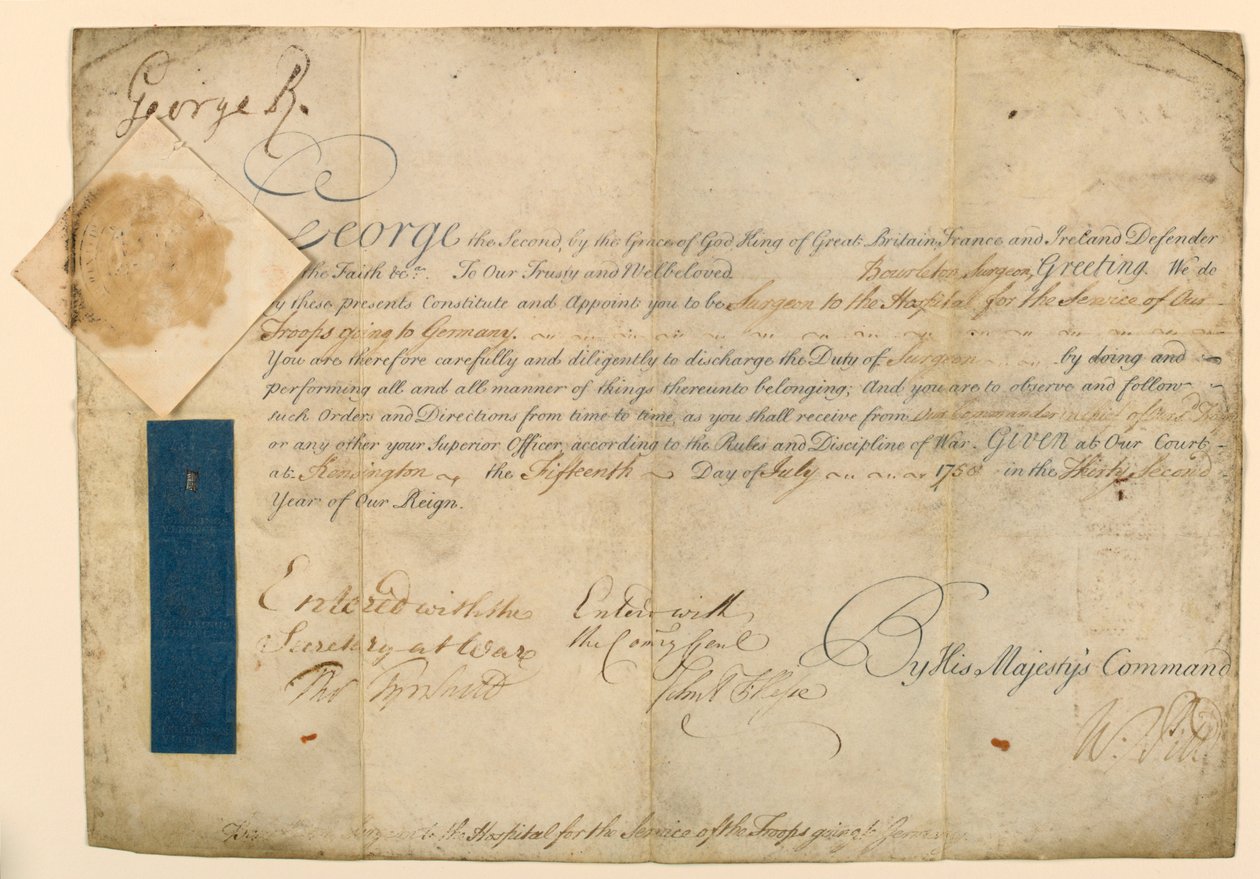 George R.
George the Second, by the Grace of God King of Great Britain, France and Ireland Defender
the Faith &c. To Our Trusty and Welbeloved Surgeon, Greeting. We do
by these presents Constitute and Appoint you to be Surgeon to the Hospital for the Service of Our
Troops going to Germany.
You are therefore carefully and diligently to discharge the Duty of Surgeon by doing and
performing all and all manner of things thereunto belonging; And you are to observe and follow
such Orders and Directions from time to time, as you shall receive from Our Commander in chief of
or any other your Superior Officer, according to the Rules and Discipline of War. GIVEN at Our Court
at Kensington the Fifteenth Day of July 1758 in the Thirty Second
Year of Our Reign.
Enter'd with the
Secretary at War
Tho
Enter'd with
the Com'ry Gen'l
John
By His Majesty's Command
W. Pitt
Surgeon to the Hospital for the Service of the Troops going to Germany